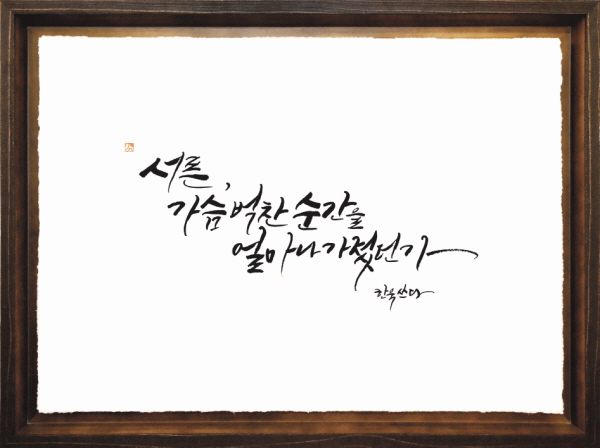 서른,
가슴 벅찬 순간을
얼마나 가졌던가
한옥 쓰다